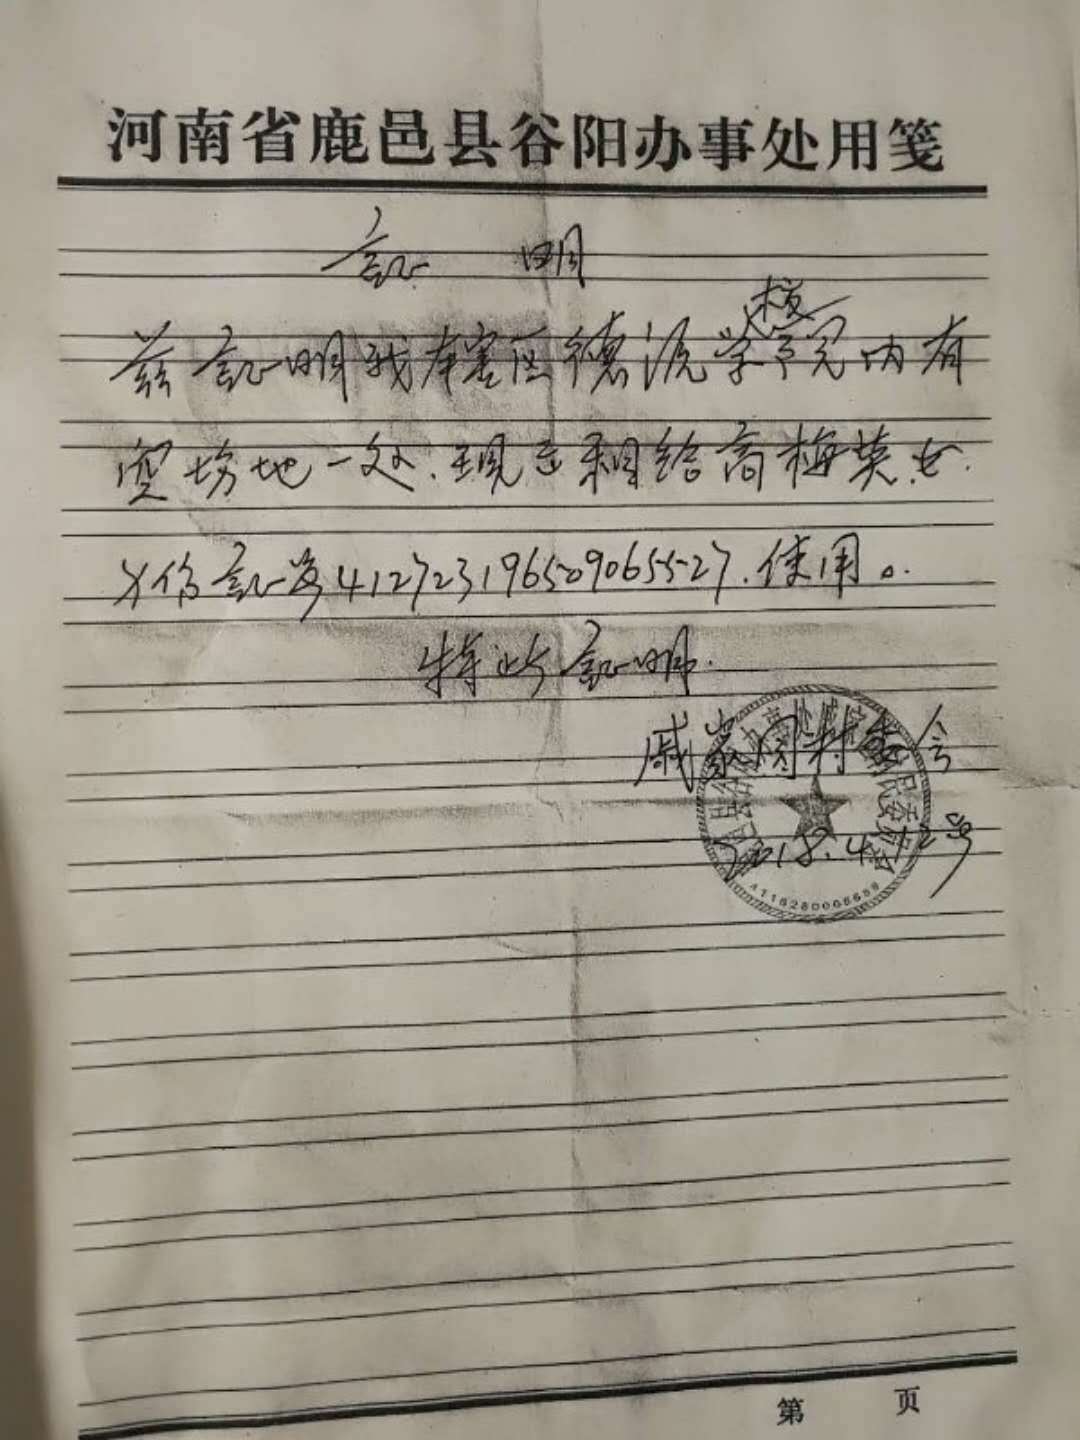 河南省鹿邑县谷阳办事处用笺
证 明
兹证明我本害区德源学校院内有
空场地一处.现已租给高梅英.女.
身份证号412723196509065527.使用。
特此证明.
戚家阁村委会
2018.4.12号
4116280006669
第 页